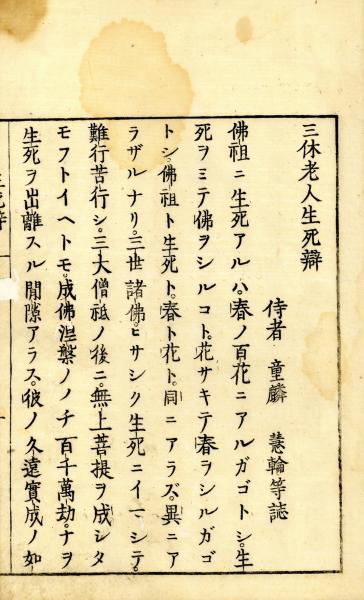 三休老人生死辯
侍者 童麟 慧輪等誌
佛祖ニ生死アルハ。春ノ百花ニアルガゴトシ。生
死ヲミテ佛ヲシルコト。花サキテ春ヲシルガゴ
トシ。佛祖ト生死ト。春ト花ト。同ニアラズ。異ニア
ラザルナリ。三世諸佛。ヒサシク生死ニイマシテ。
難行苦行シ。三大僧祗ノ後ニ。無上菩提ヲ成シタ
モフトイヘトモ。成佛涅槃ノノチ百千萬劫。ナヲ
生死ヲ出離スル間隙アラス。彼ノ久遠實成ノ如